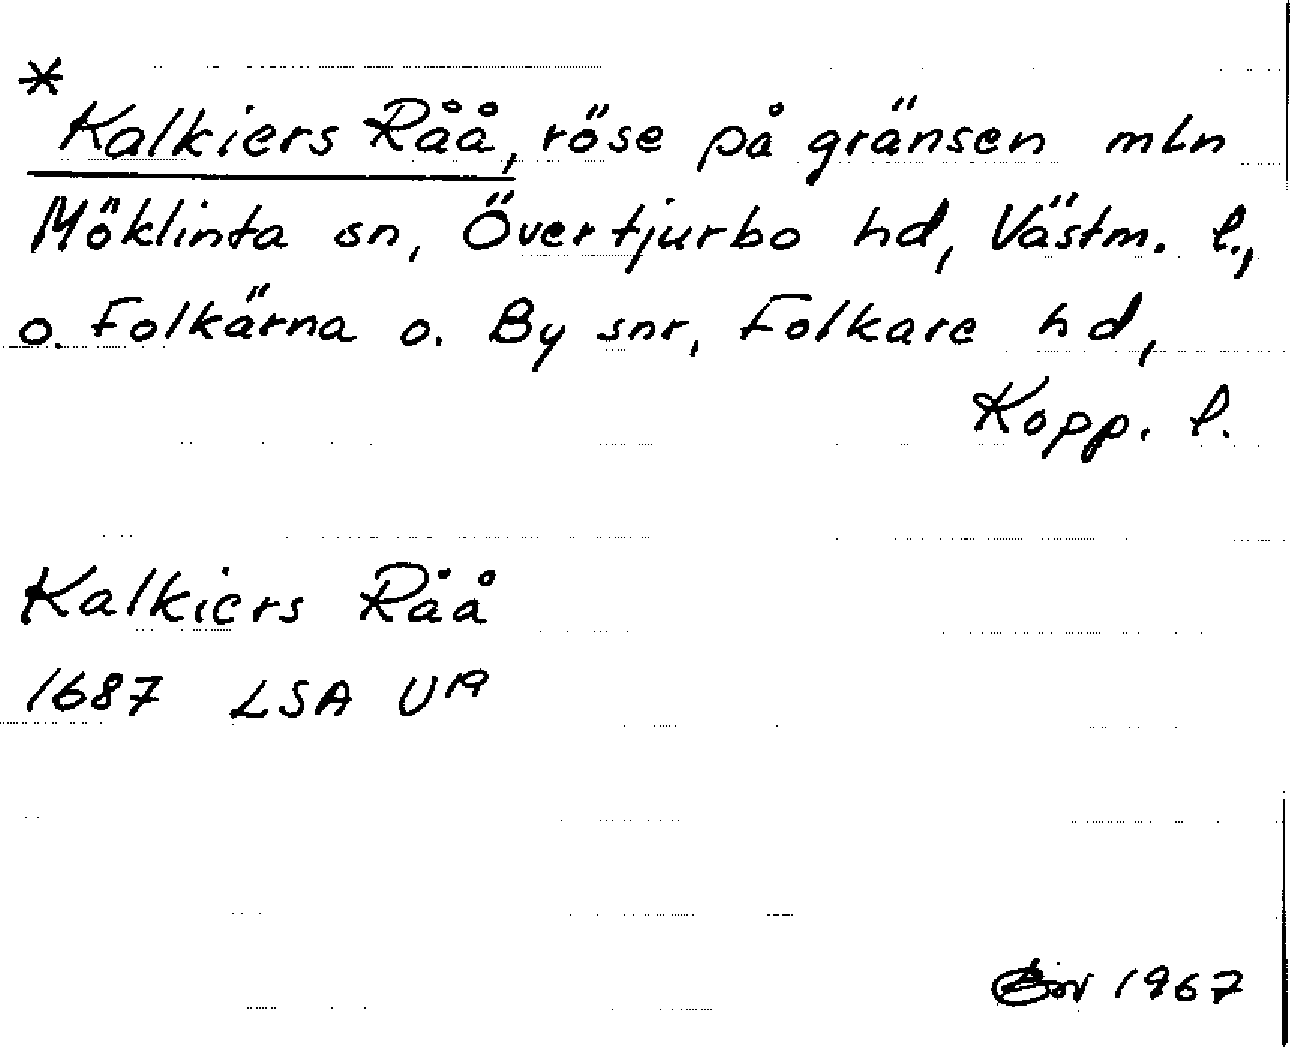 * Kalkiers Råå, röse på gränsen mln
Möklinta sn, Övertjurbo hd, Västm. l.,
o. Folkärna o. By snr, Folkare hd,
Kopp. l.
Kalkiers Råå
1687 LSA U19
1967